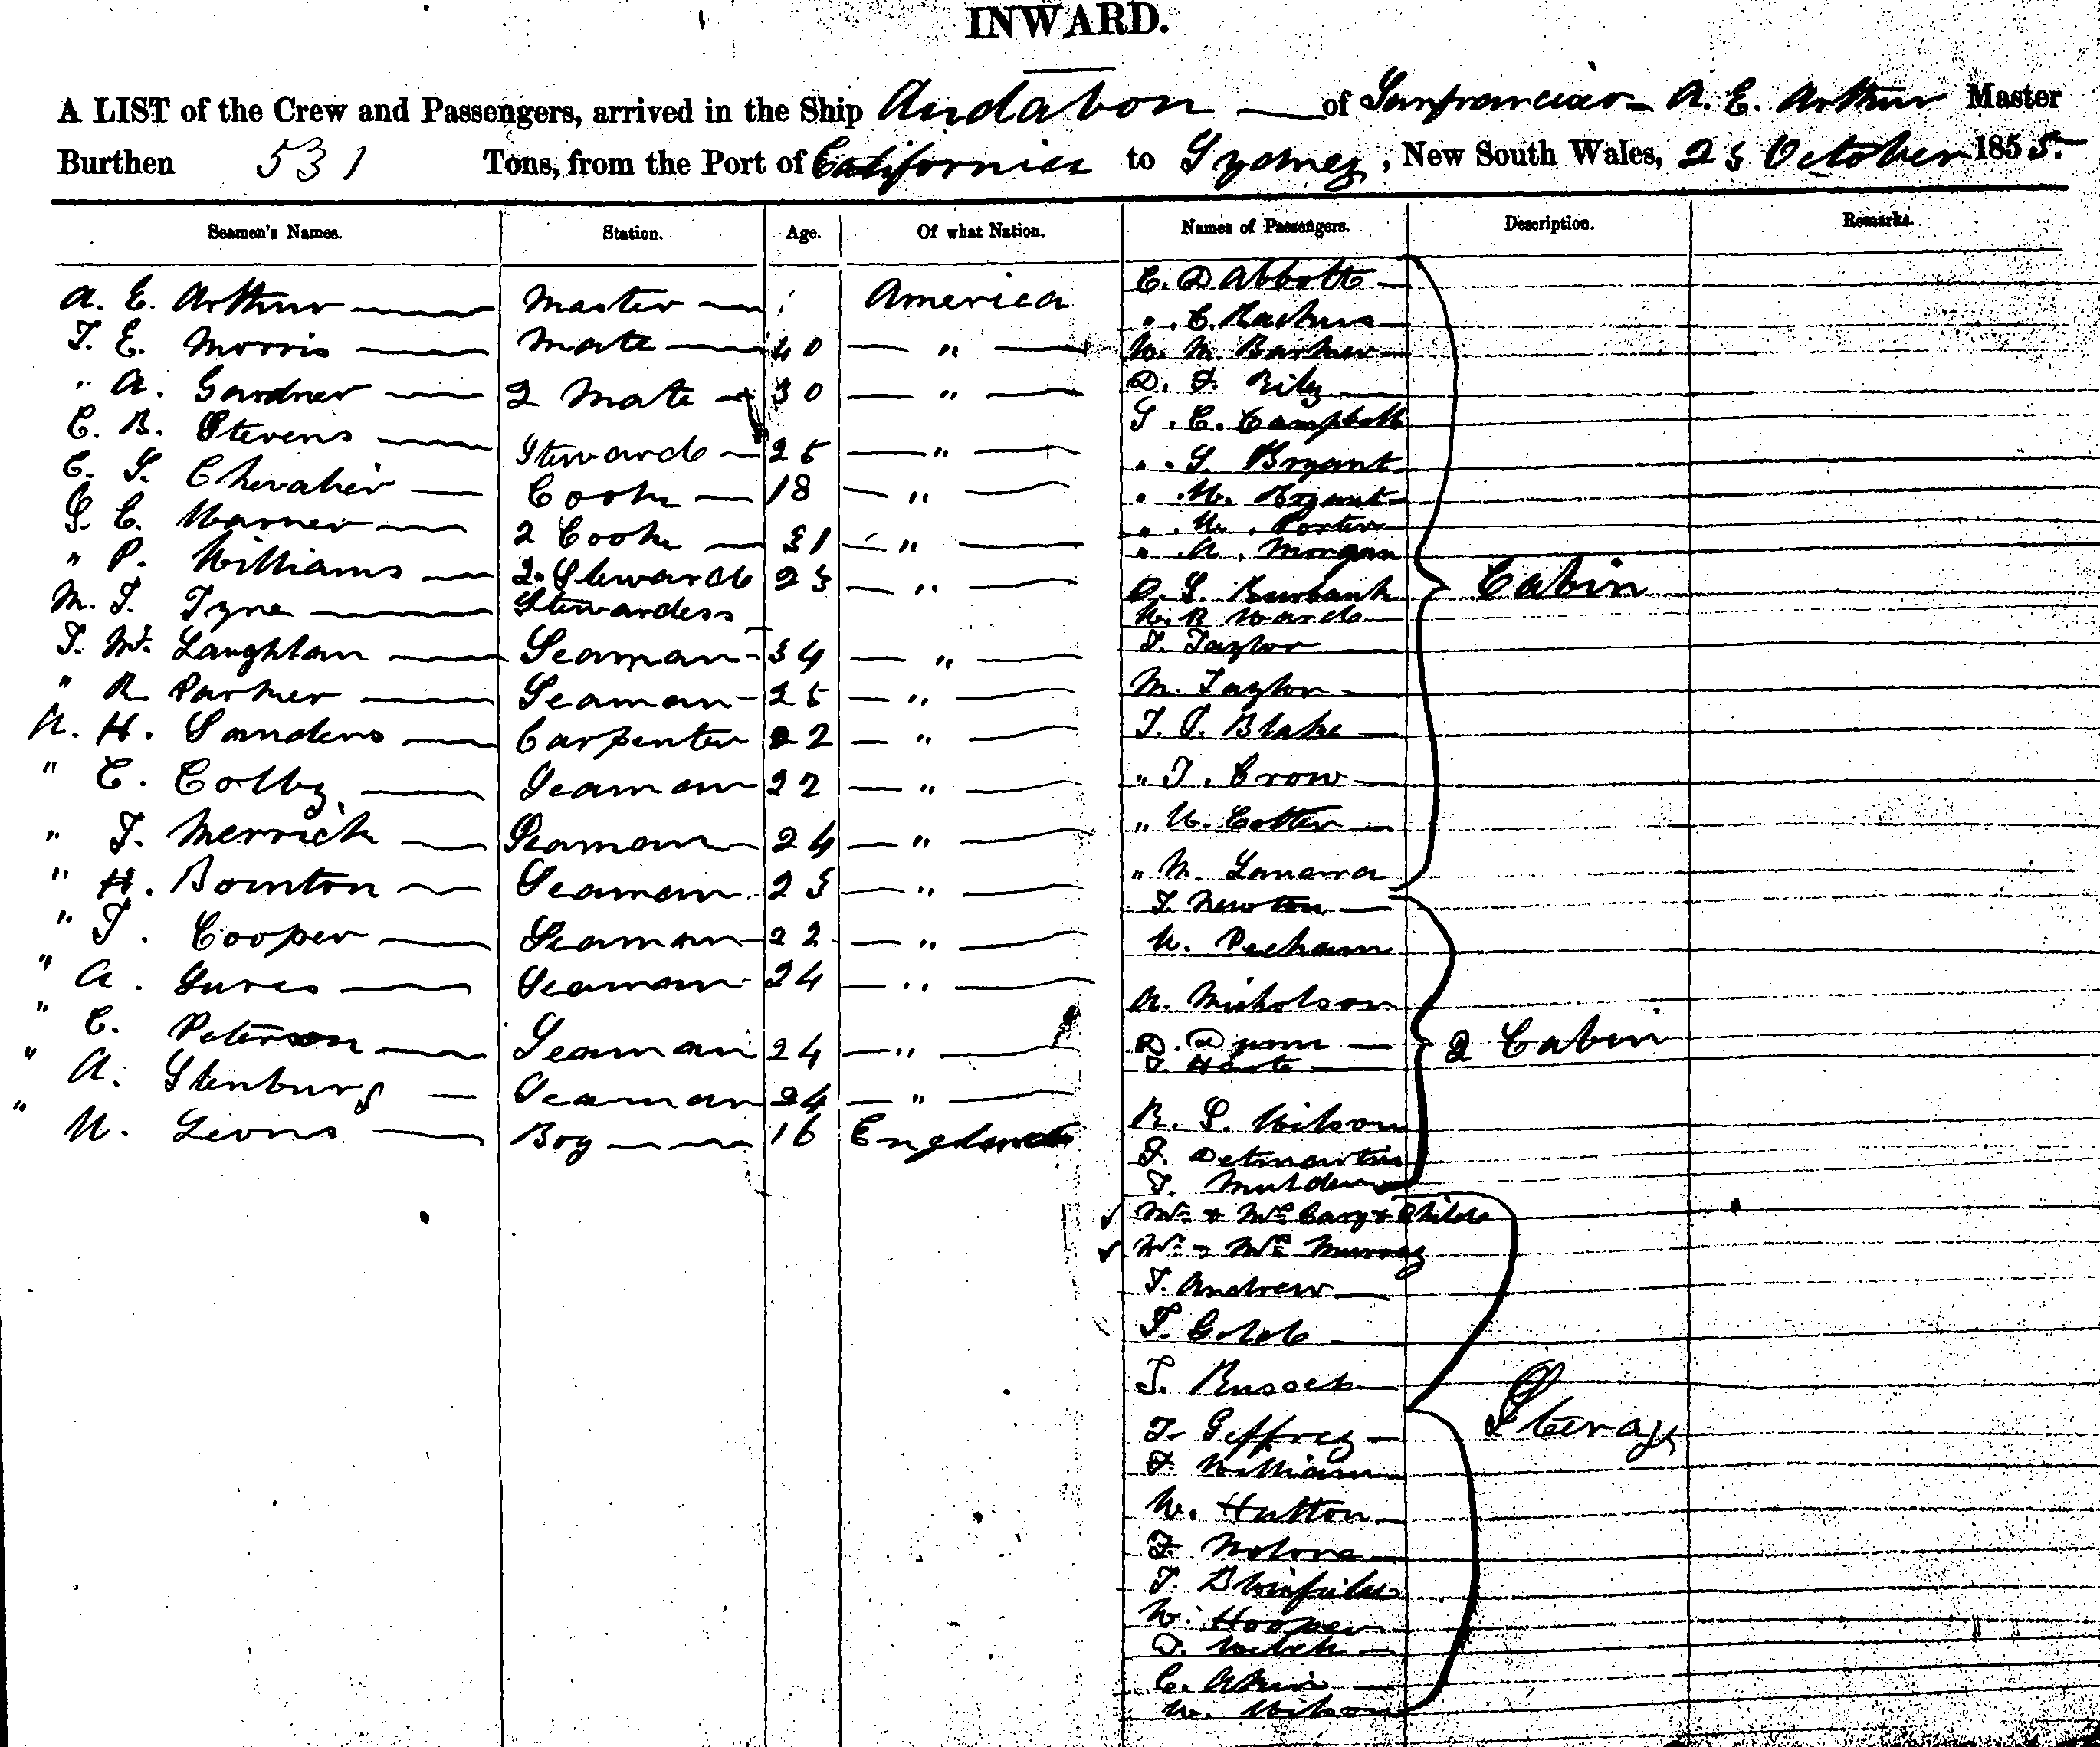 INWARD.
A LIST of the Crew and Passengers, arrived in the Ship Audabon — of Sanfrancisco - A. E. Arthur Master
Burthen 531 Tons, from the Port of California to Sydney, New South Wales, 23 October 1855.
Seamen's Names. Station. Age. Of what Nation. Names of Passengers. Description. Remarks.
A. E. Arthur — Master — America
T. E. Morris — Mate — 40 — " —
" A. Gardner — 2 Mate — 30 — " —
C. B. Stevens — Steward — 25 — " —
C. S. Chevalier — Cook — 18 — " —
S. C. Warner — 2 Cook — 31 — " —
" P. Williams — 2. Steward 23 — " —
M. T. Tyne — Stewardess
T. Mc Laughlan — Seaman - 34 — " —
" R. Parker — Seaman - 25 — " —
W. H. Sanders — Carpenter 22 — " —
" C. Colby — Seaman 22 — " —
" T. Merrick — Seaman 24 — " —
" H. Bointon — Seaman 23 — " —
" T. Cooper — Seaman 22 — " —
" A. — Seaman 24 — " —
" C. Peterson — Seaman 24 — " —
" A. Stenburg — Seaman 24 — " —
" W. — Boy — 16 England
C. D Abbott —
" . C.
W. M. Barker —
D. F. Rily —
S. C. Campbell
" . S. Bryant
" . W. Bryant —
" . W. Porter
" . A. Morgan
O. S. Burbank
W. R Ward —
T. Taylor —
M. Taylor —
T. S. Blake —
" T. Crow —
" W. Cotter —
" M.
Cabin
T. Newton —
W. Pecham
A. Nicholson
D. Dunn —
T. Harte —
R. S. Wilson
F. Detmartin
T. Mulden
2 Cabin
Mr. & Mrs Cary & Child
Mr. & Mrs Murray
T. Andrew —
T. Gold —
T. Russel —
T. Geffrey —
T. William
W. Hutton —
T.
T.
W. Hooper
T. Welch —
C. Akin —
W. Wilson
Sterage